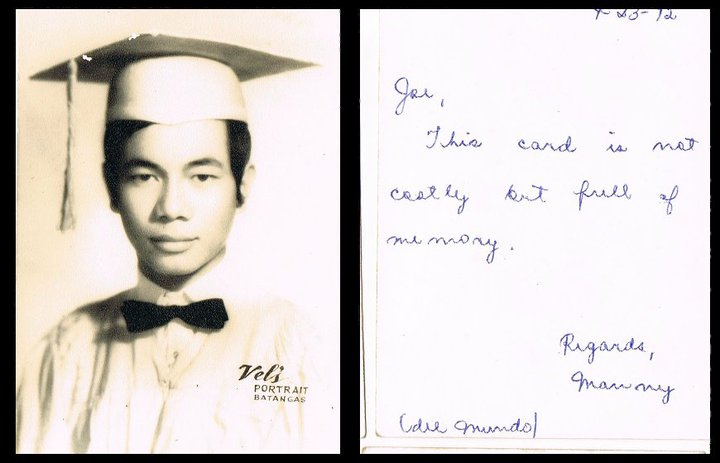 Vel's
PORTRAIT
BATANGAS
4-23-72
Joe,
This card is not
costly but full of
memory.
Regards,
Manny
(del Mundo)